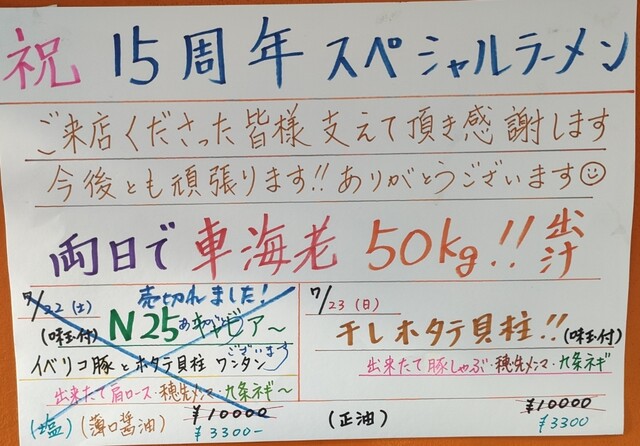 祝 15周年 スペシャルラーメン
ご来店くださった皆様 支えて頂き感謝します
今後とも頑張ります!! ありがとうございます☺
両日で 車海老 50kg!! 出汁
7/22 (土) 売切れました!
(味玉付) N25 キャビア〜
イベリコ豚とホタテ貝柱 ワンタン
ございます
出来たて肩ロース・穂先メンマ・九条ネギ〜
(塩) (薄口醤油) ¥10000
¥3300-
7/23 (日)
干しホタテ貝柱!! (味玉付)
出来たて豚しゃぶ・穂先メンマ・九条ネギ
(正油) ¥10000
¥3300